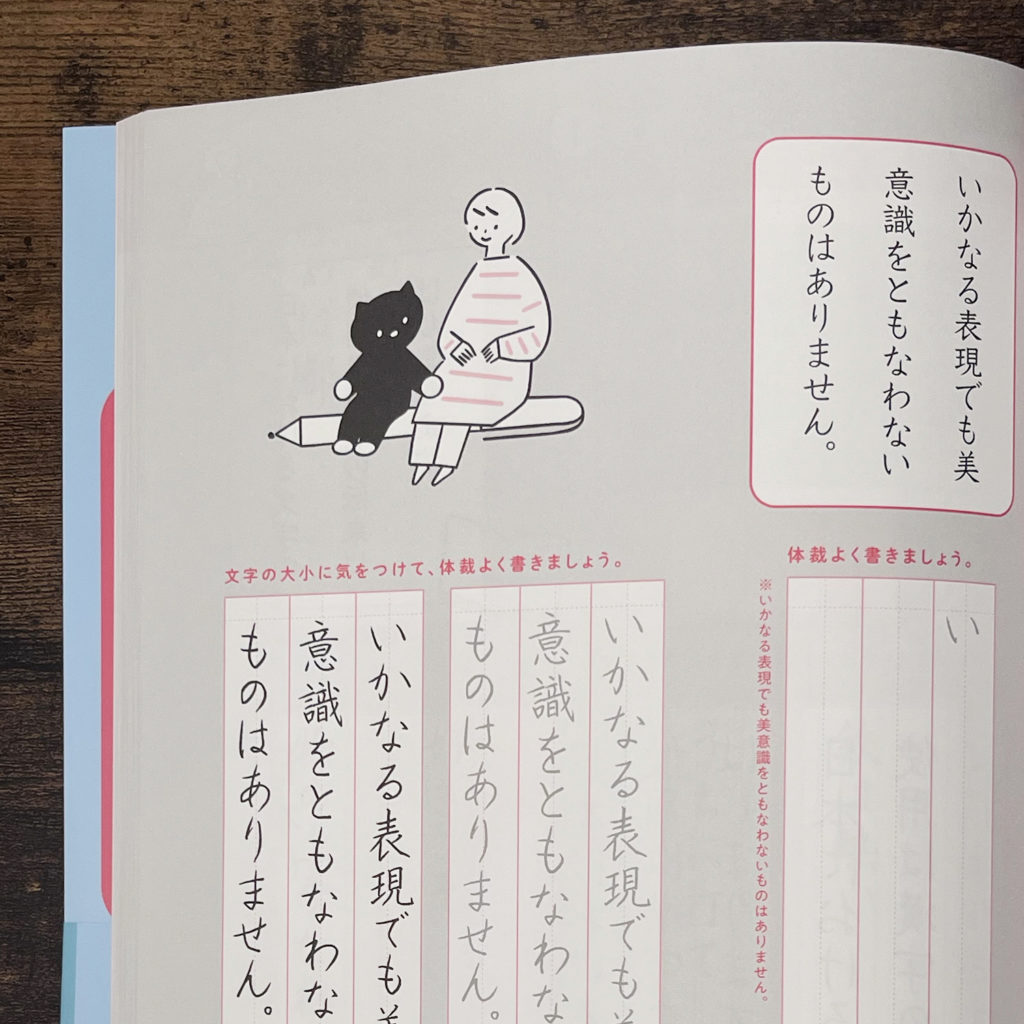 いかなる表現でも美
意識をともなわない
ものはありません。
体裁よく書きましょう。
い
※いかなる表現でも美意識をともなわないものはありません。
文字の大小に気をつけて、体裁よく書きましょう。
いかなる表現でも美
意識をともなわな
ものはありません。
いかなる表現でも美
意識をともなわな
ものはありません。